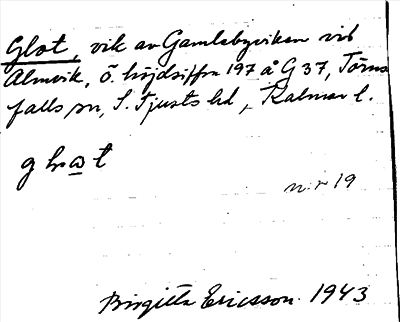 Glot, vik av Gamlebyviken vid
Almvik, ö. höjdsiffra 197 å G 37, Törns
falls sn, S. Tjusts hd, Kalmar l.
n:r 19
Birgitta Ericsson 1943